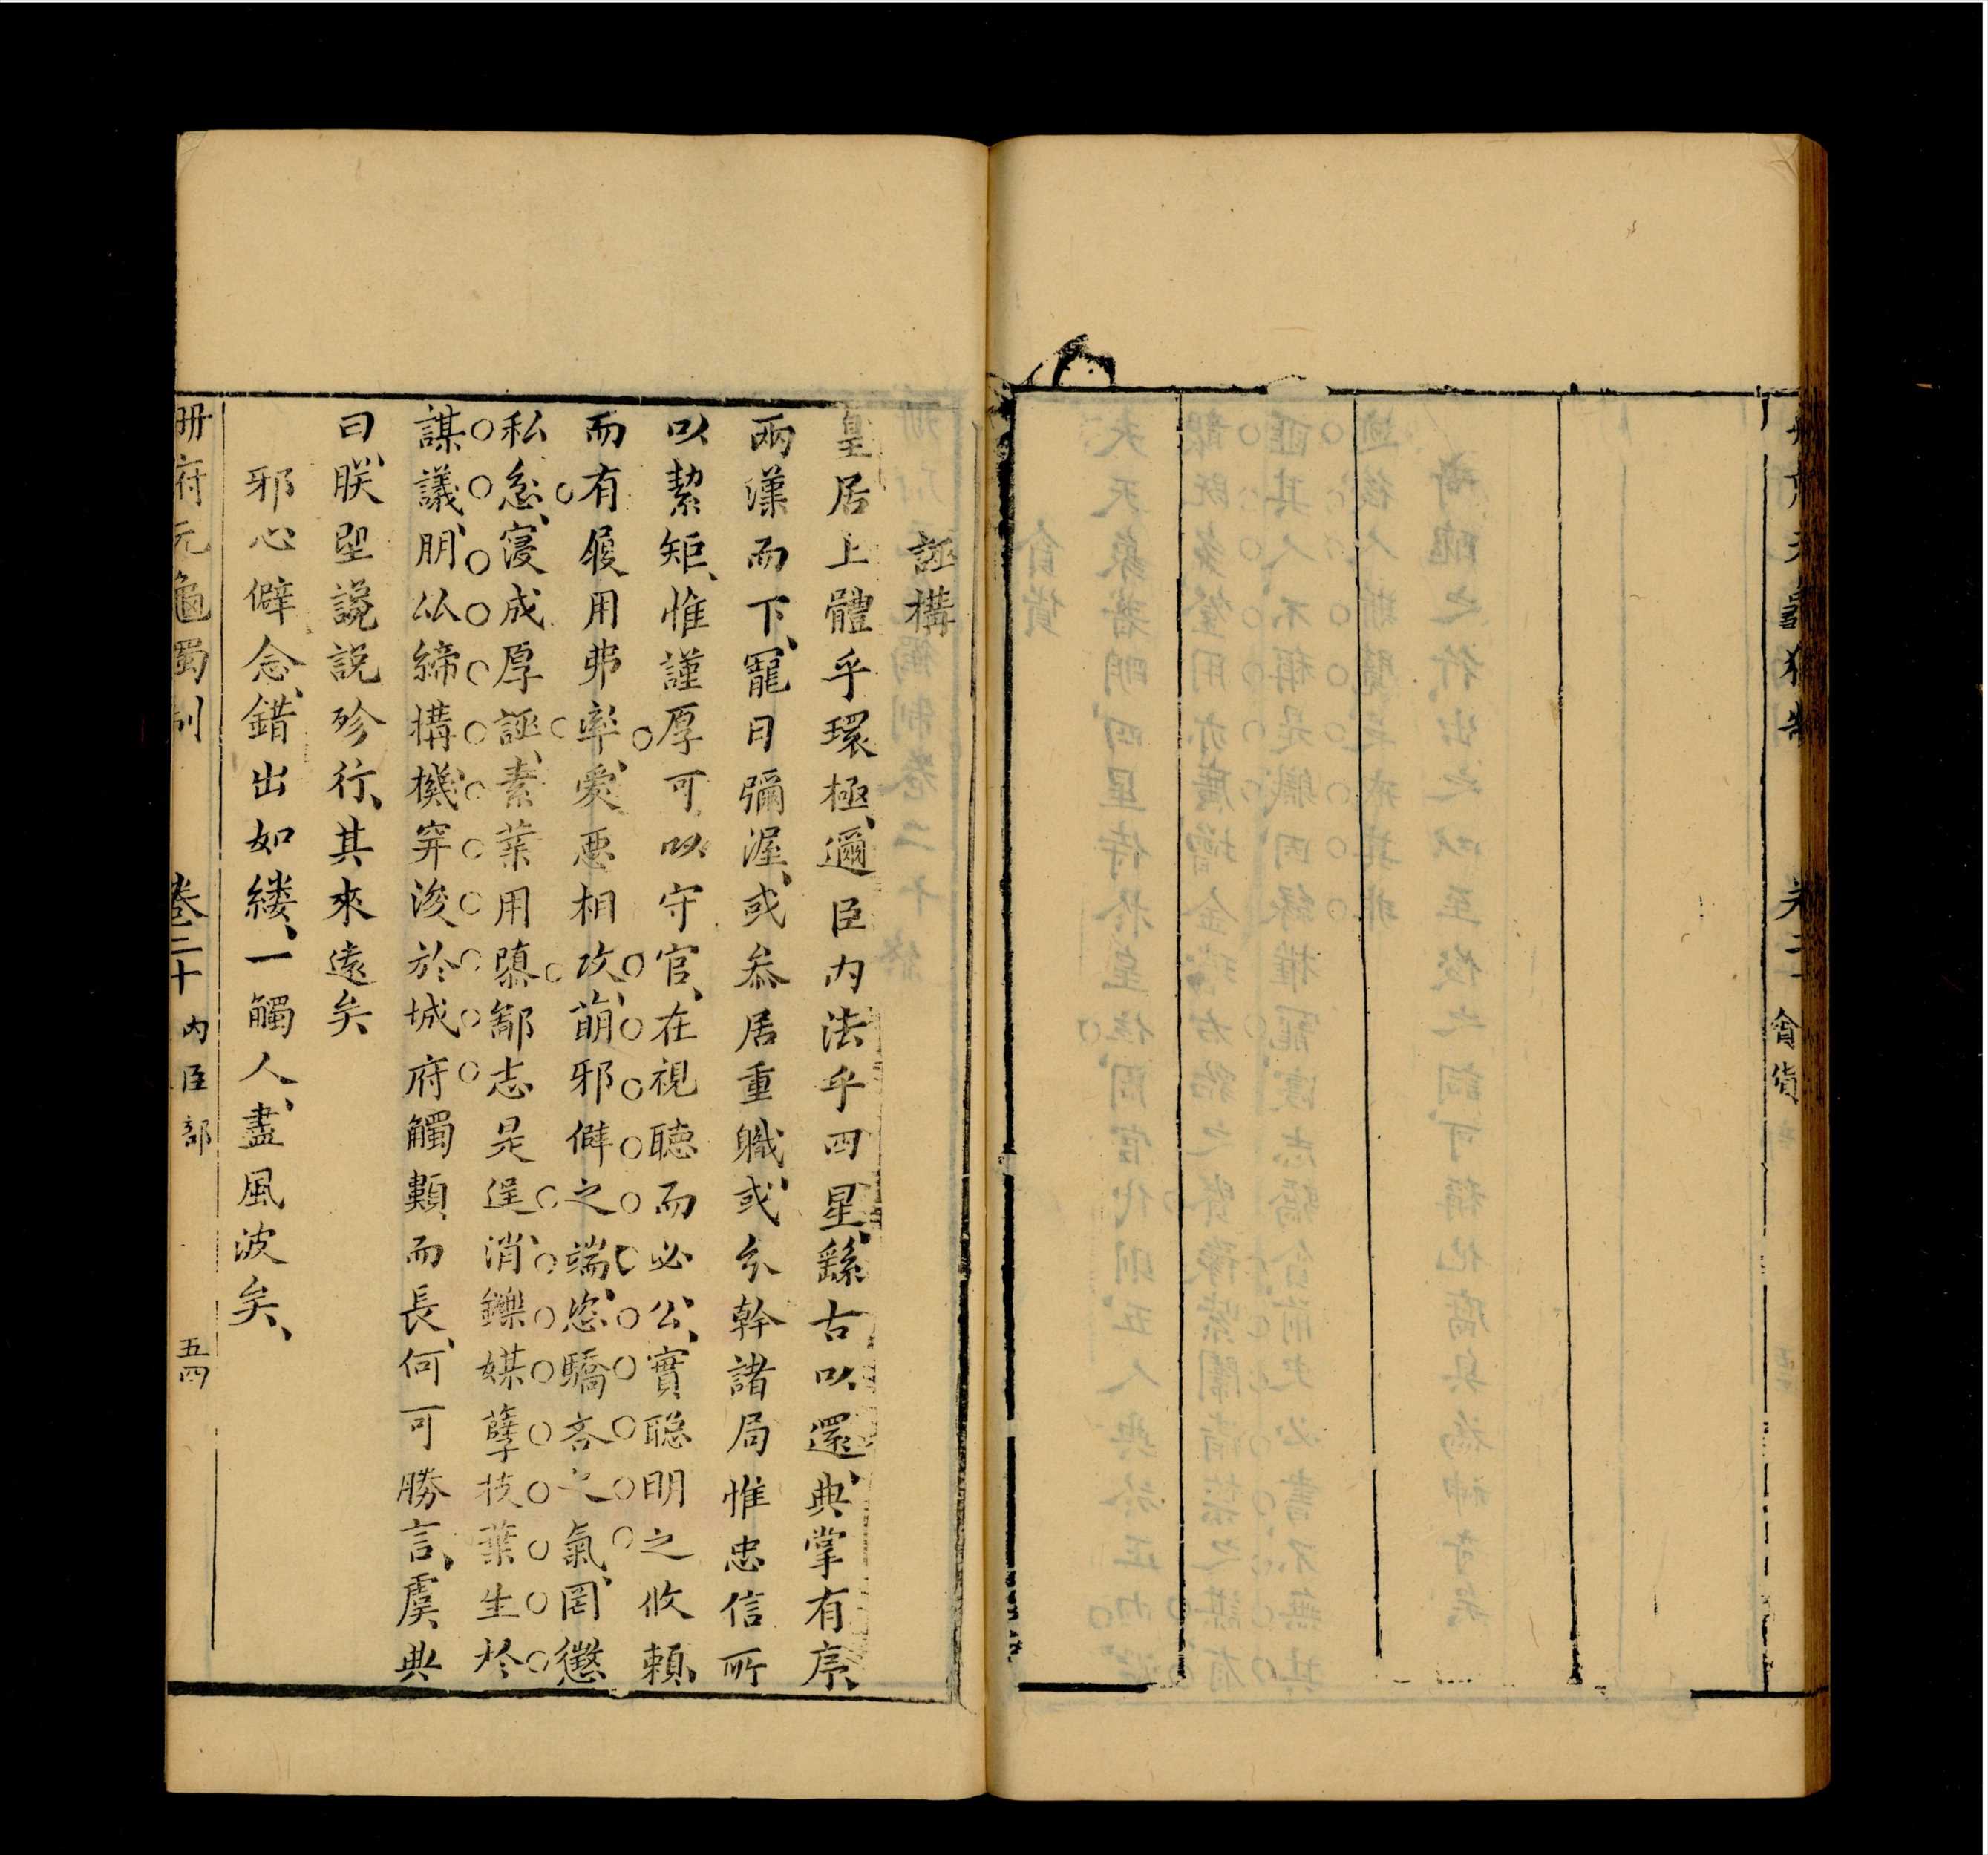 貪貨
誣構
皇居上體乎環極、邇臣内法乎四星、繇古以還、典掌有序、
兩漢而下、寵日彌渥、或叅居重職、或分幹諸局惟忠信所
以絜矩、惟謹厚可以守官、在視聽而必公、實聰明之攸賴、
而有履用弗率、愛惡相攻、萌邪僻之端、恣驕吝之氣、罔懲
私忿、寖成厚誣、素業用隳鄙志是逞、消鑠媒孽技葉生於
謀議、朋以締構、機穽浚於城府觸類而長、何可勝言、虞典
曰、朕堲讒説殄行、其來遠矣
邪心僻念、錯出如縷、一觸人、盡風波矣、
册府元龜獨制 卷二十 内臣部 五四